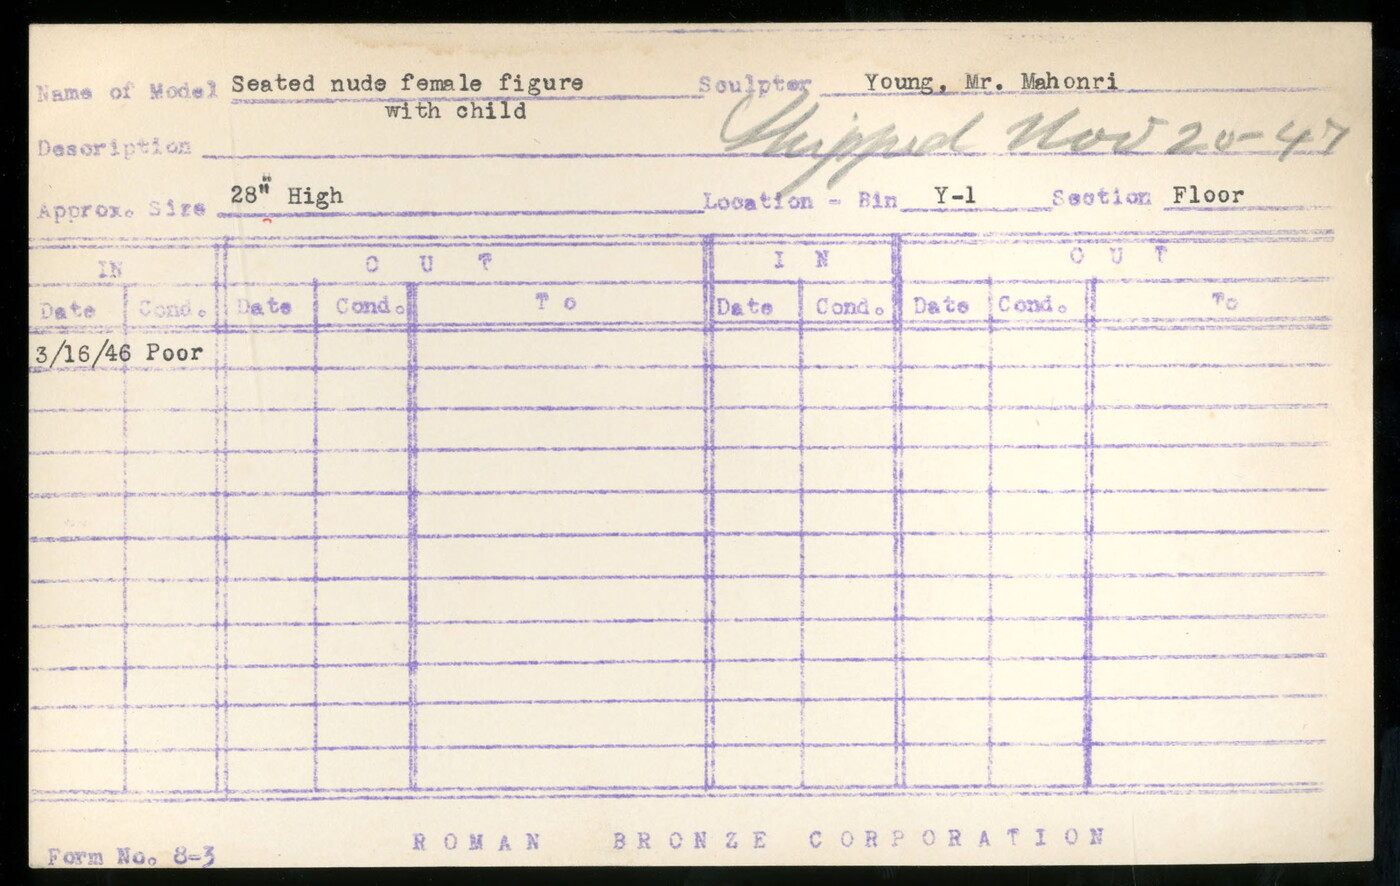 Name of Model Seated nude female figure Sculptor Young, Mr. Mahonri
with child
Description Shipped Nov 20-47
Approx. Size 28" High Location - Bin Y-1 Section Floor
IN OUT IN OUT
Date Cond. Date Cond. To Date Cond. Date Cond. To
3/16/46 Poor
ROMAN BRONZE CORPORATION
Form No. 8-3